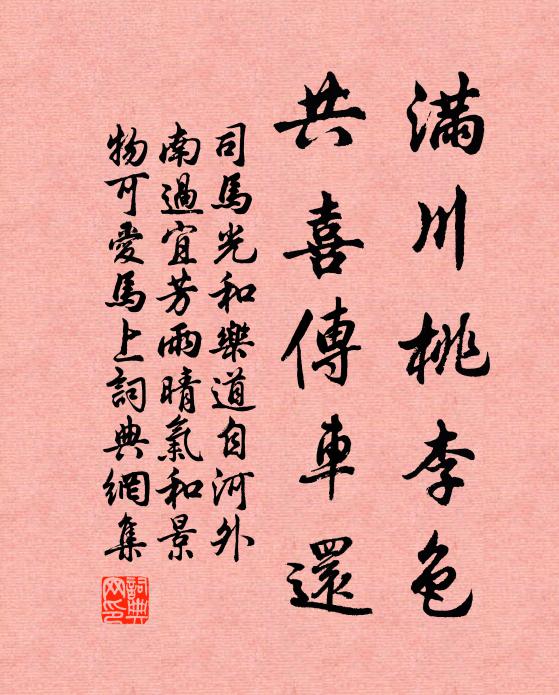 滿川桃李色
共喜傳車還
司馬光和樂道自河外
南過宜芳雨晴氣和景
物可愛馬上詞典網集
詞典網印